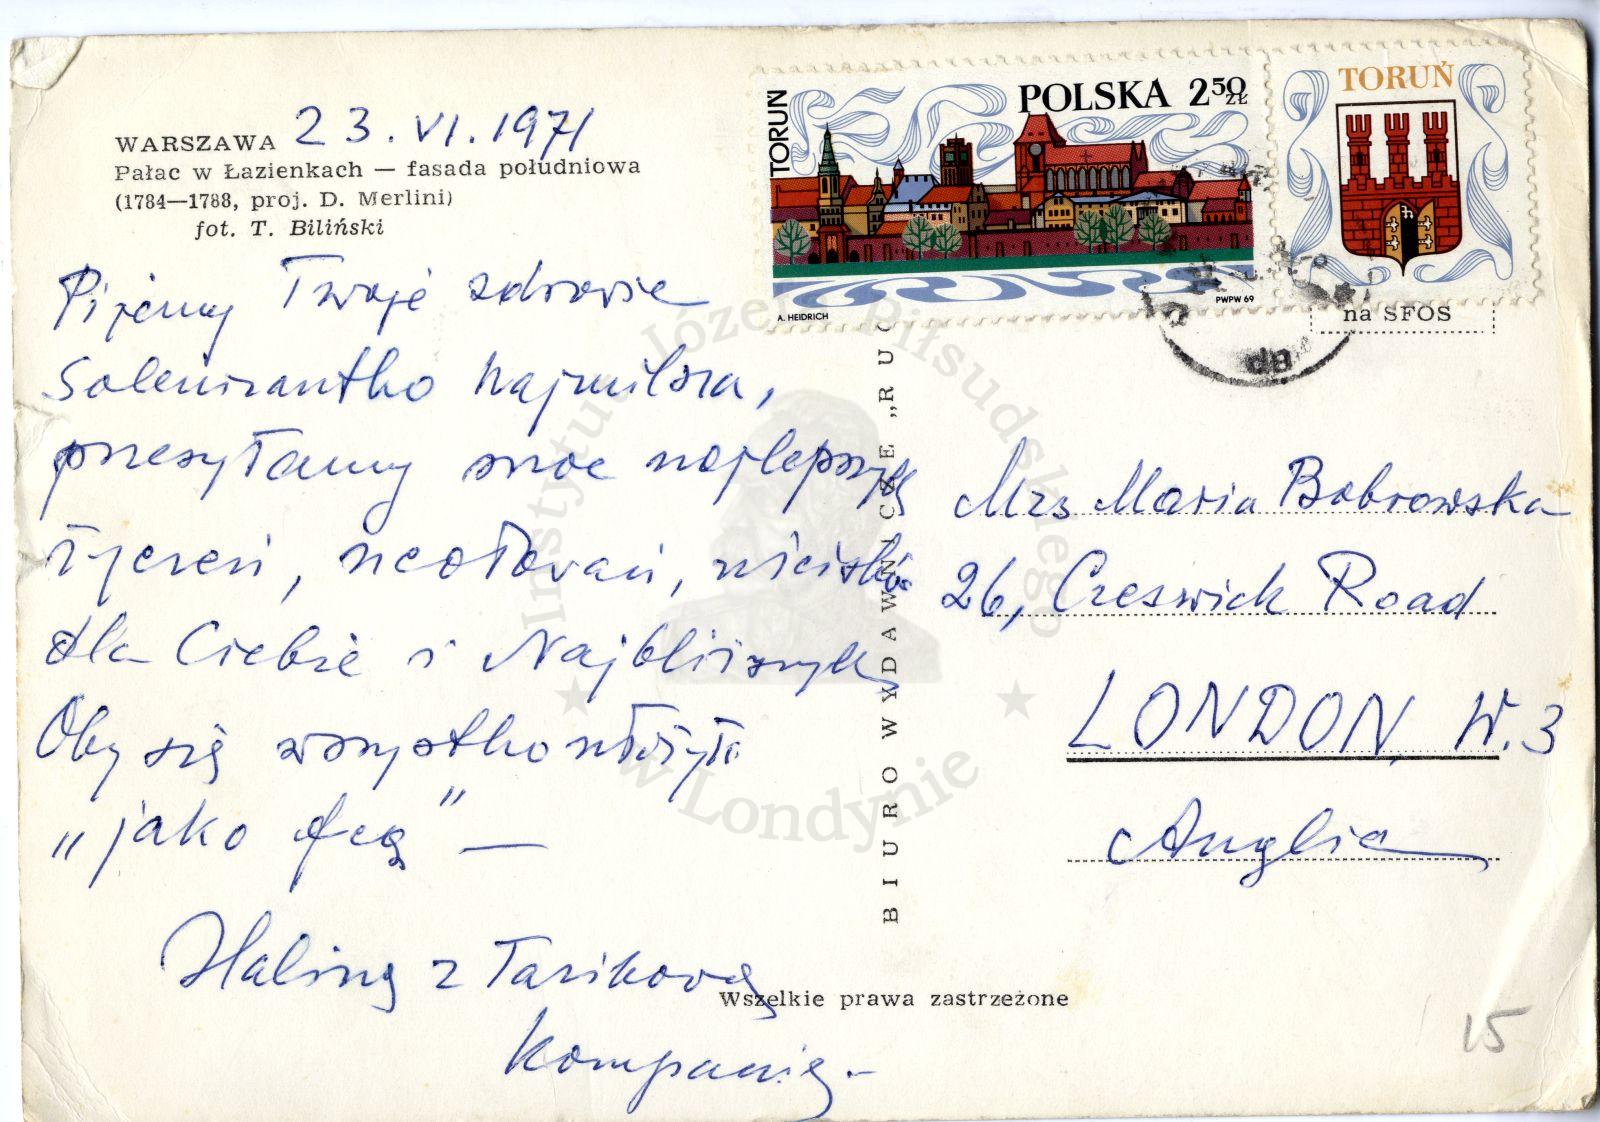 WARSZAWA 23.VI.1971
Pałac w Łazienkach — fasada południowa
(1784—1788, proj. D. Merlini)
fot. T. Biliński
Pijemy Twoje zdrowie
Solenizantko najmilsza,
przesyłamy moc najlepszych
życzeń, ucałowań, uścisków
dla Ciebie i Najbliższych
Oby się wszystko ułożyło
„jako
Halina z
Kompanią.-
TORUŃ
POLSKA 2 50 ZŁ
A. HEIDRICH
PWPW 69
TORUŃ
na SFOS
BIURO WYDAWNICZE „RUC
Mrs Maria Bobrowska
26, Czeswick Road
LONDON, W.3
Anglia
Wszelkie prawa zastrzeżone
15
Instytut Józefa Piłsudskiego
w Londynie